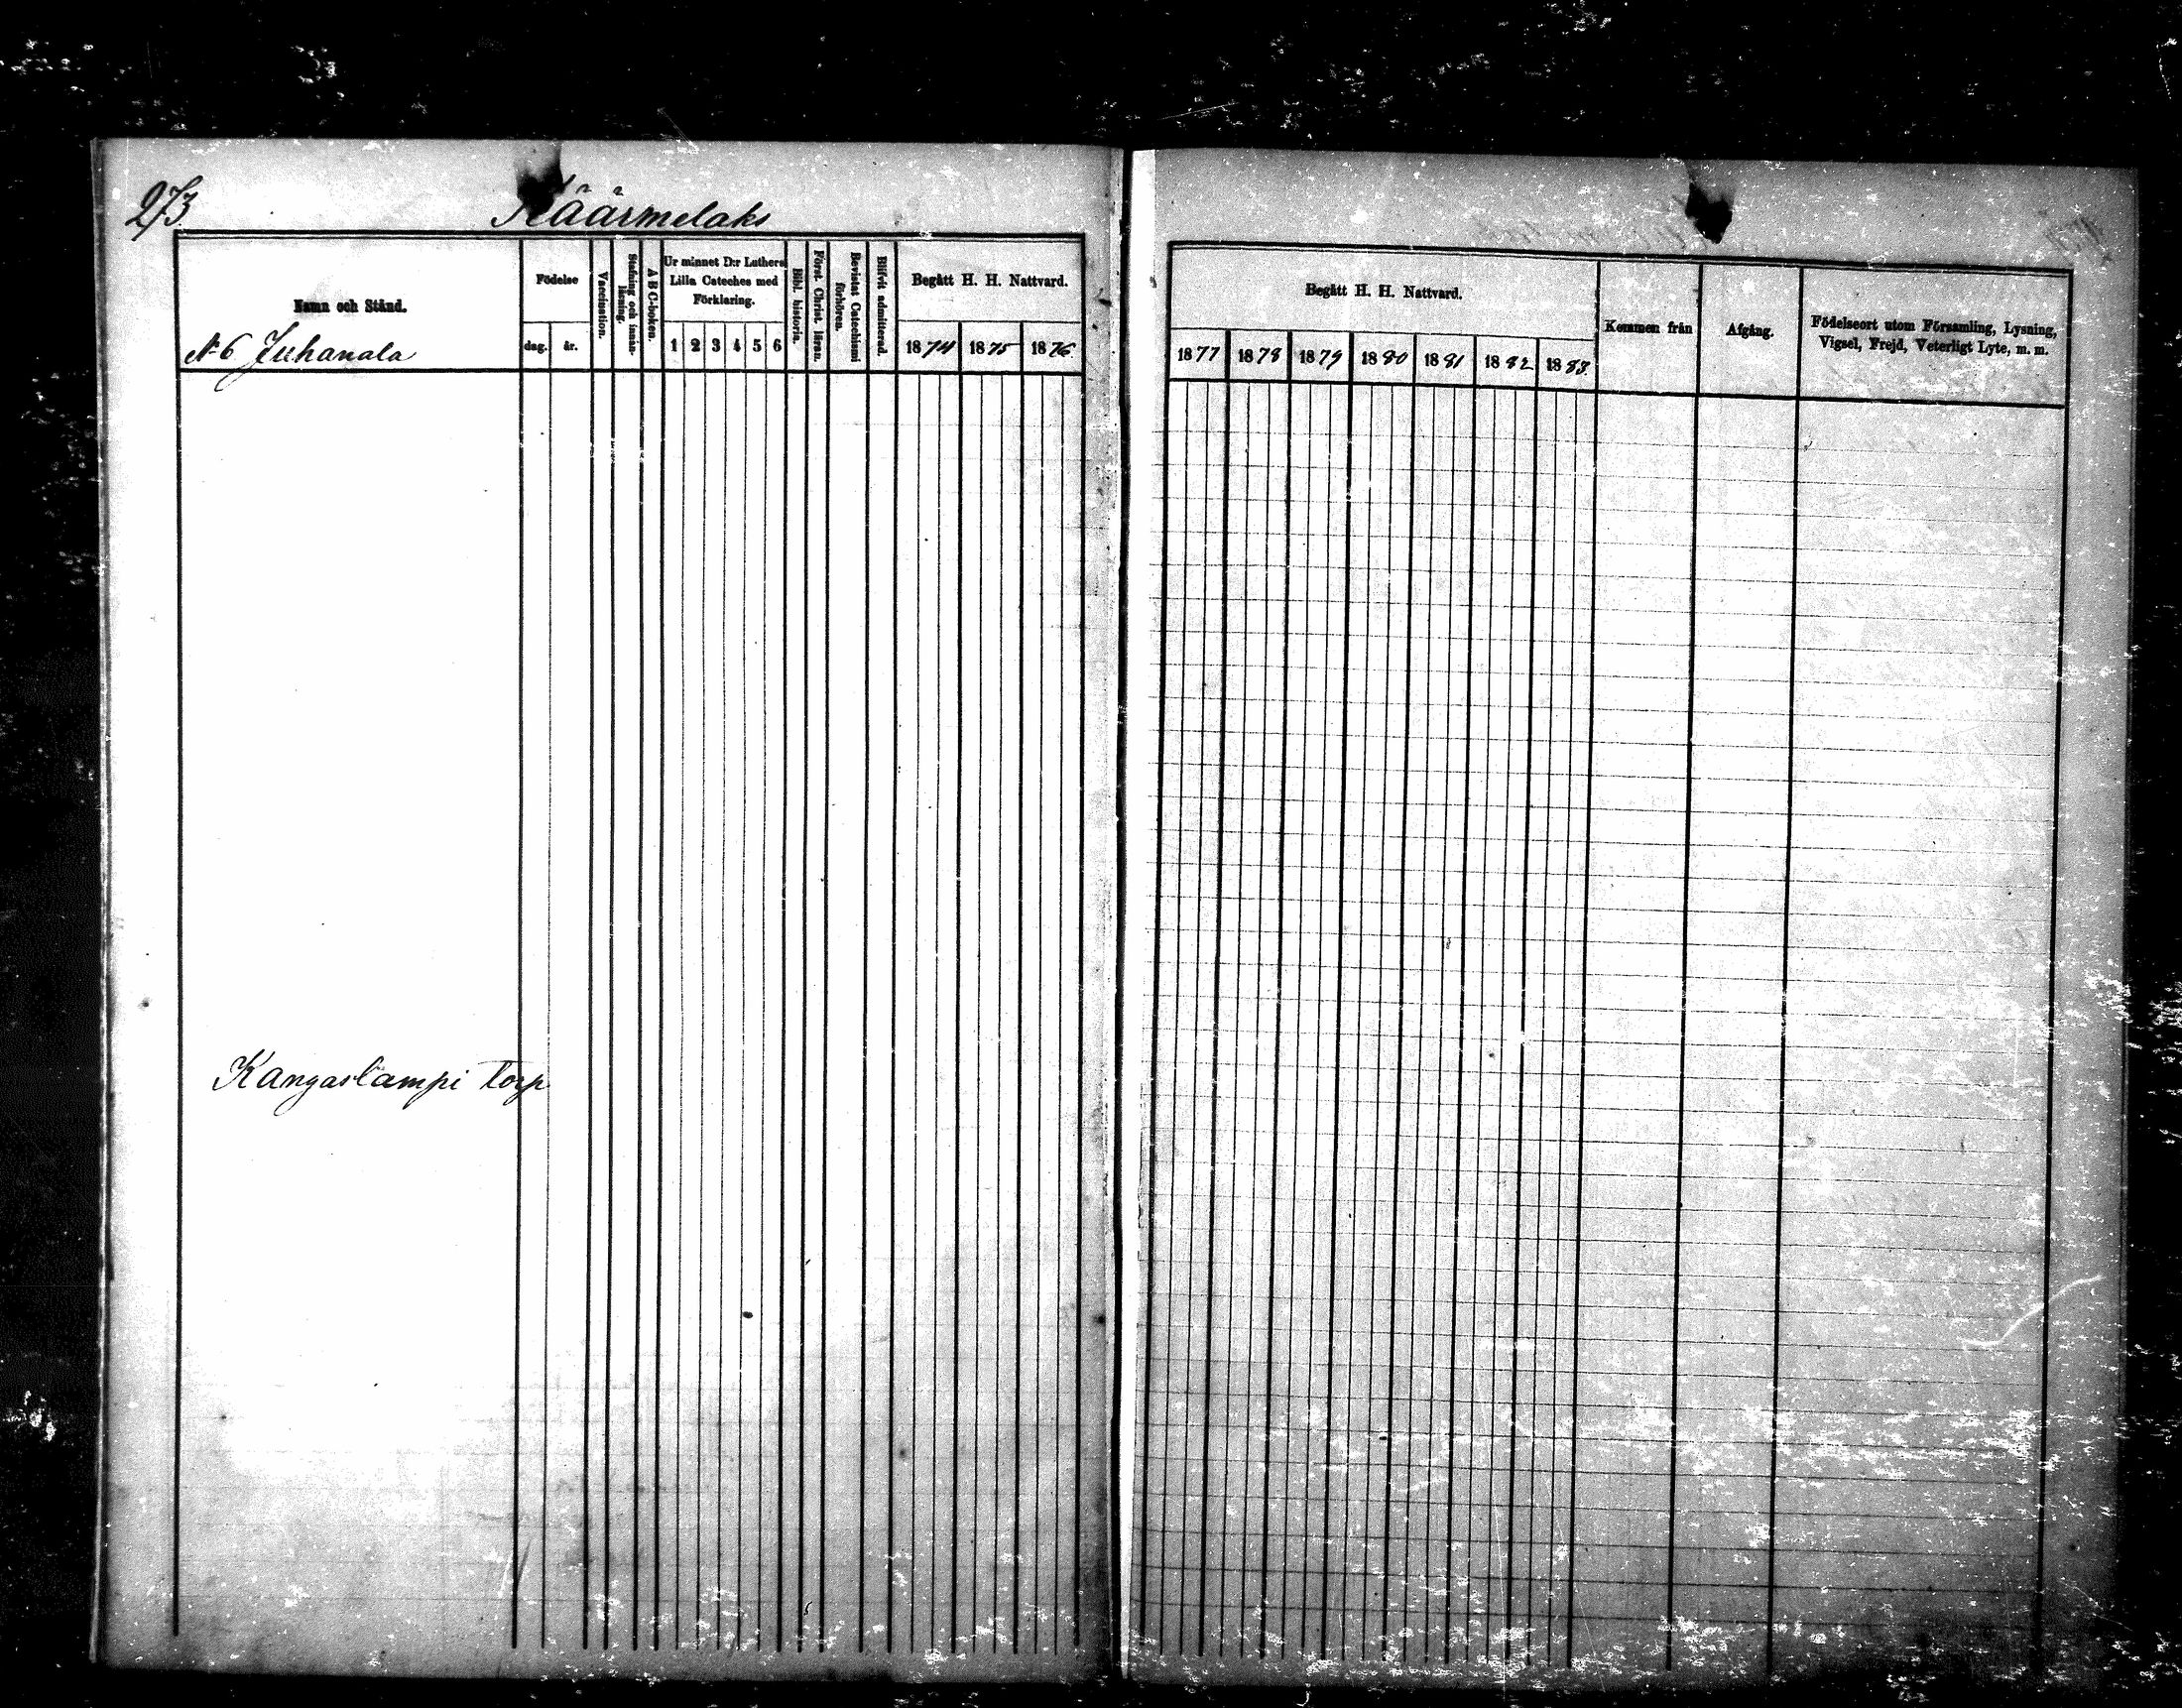 273.
Käärmelaks
Namn och Stånd.
Födelse
dag.
år.
Vaccination.
Stafning och innanläsning.
A B C-boken.
Ur minnet D:r Luthers
Lilla Cateches med
Förklaring.
1 2 3 4 5 6
Bibl. historia.
Först. Christ. läran.
Bevistat Catechismi
förhören.
Blifvit admitterad.
Begått H. H. Nattvard.
1874 1875 1876
N 6 Juhanala
Kangaslampi Torp
Begått H. H. Nattvard.
1877 1878 1879 1880 1881 1882 1883.
Kommen från
Afgång.
Födelseort utom Församling, Lysning,
Vigsel, Frejd, Veterligt Lyte, m. m.